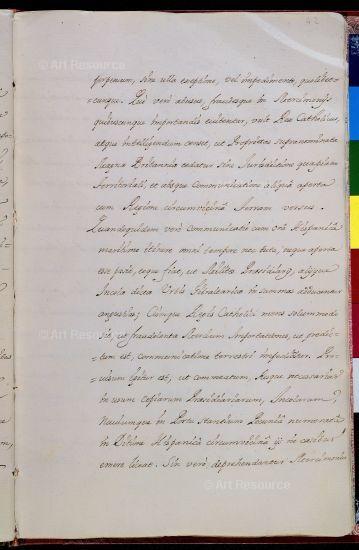 © Art Resource
42
perpetuum, sine ulla exceptione, vel impedimento, quolibet-
=cunque. Quò verò abusus, fraudesque in Mercimonijs
quibuscunque importandis evitentur, vult Rex Catholicus,
atque intelligendum censet, ut Proprietas supranominata
Magnæ Britanniæ cedatur sine Jurisdictione quapiam
territoriali, et absque communicatione aliqua aperta
cum Regione circumvicina Terram versus.
Quandoquidem verò communicatio cum orâ Hispaniæ
maritimo itinere omni tempore nec tuta, neque aperta
esse potest, eoque fiat, ut Milites Præsidiarij, aliique
Incolæ dictæ Urbis Gibraltaricæ in summas adducantur
angustias; Cumque Regis Catholici mens solummodo
sit, ut fraudulentæ Mercium Importationes, ut prædic-
=tum est, communicatione terrestri impediantur. Pro-
=visum igitur est, ut commeatum, aliaque necessaria
in usum copiarum Præsidiariarum, Incolarum,
Naviumque in Portu stantium Pecuniâ numeratâ
in Ditione Hispanicâ circumvicinâ ijs in casibus
emere liceat. Sin verò deprehendantur Mercimonia
© Art Resource
© Art Resource